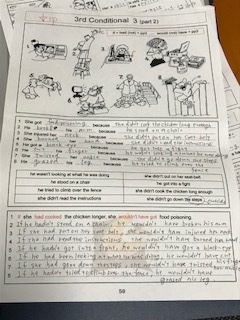 3rd Conditional 3 (part 2)
if + had (not) + pp3 would (not) have + pp3
1 She got food poisoning because she didn't cook the chicken long enough.
2 He broke his arm because he stood on a chair
3 She injured her neck because she didn't put on seat belt
4 She burned her hand because she didn't read the instructions
5 He got a black eye because
6 He cut his finger because he wasn't looking at what he was doing
7 She twisted her ankle because she didn't go down
8 He grazed his leg because he tried to climb over the fence
he wasn't looking at what he was doing she didn't put on her seat-belt
he stood on a chair he got into a fight
he tried to climb over the fence she didn't cook the chicken long enough
she didn't read the instructions she didn't go down the steps
1 If she had cooked the chicken longer, she wouldn't have got food poisoning.
2 If he hadn't stood on a chair, he wouldn't have broken his arm
3 If she had put on her seat belt, she wouldn't have injured her neck
4 If she had read the instructions, she wouldn't have burned her hand
5 If he hadn't got into a fight, he wouldn't have got a black eye
6 If he had been looking at what he was doing, he wouldn't have cut
7 If she had gone down the steps, she wouldn't have twisted
8 If he hadn't tried to climb over the fence, he wouldn't have
grazed his leg.
59